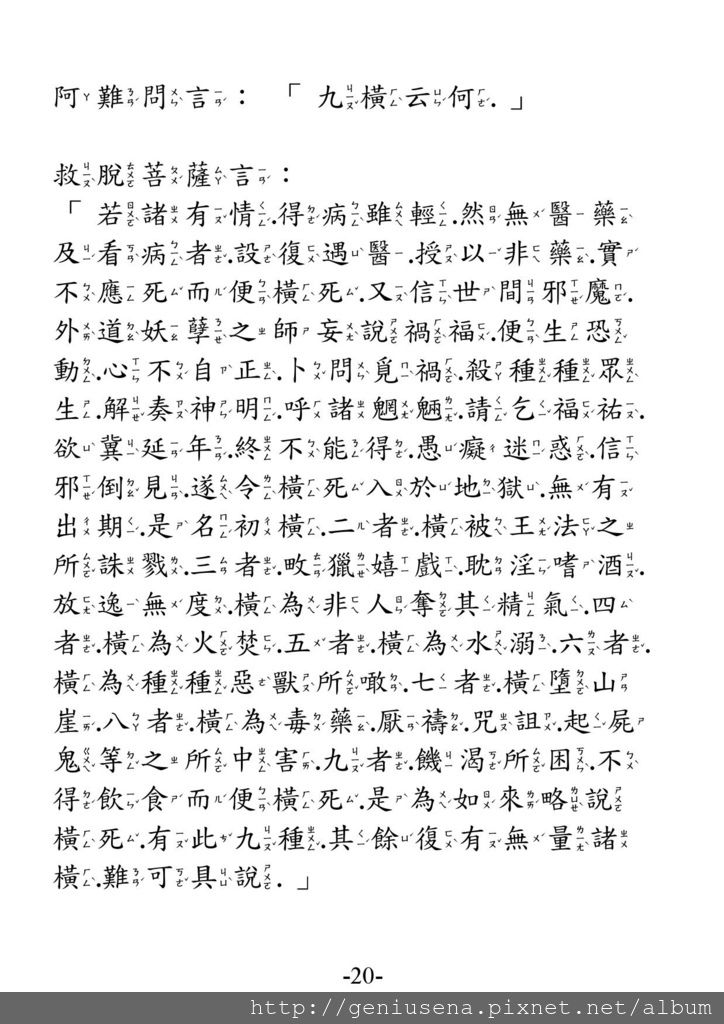 阿難問言： 「 九橫云何. 」
救脫菩薩言：
「 若諸有情.得病雖輕.然無醫藥
及看病者.設復遇醫.授以非藥.實
不應死而便橫死.又信世間邪魔.
外道妖孽之師妄說禍福.便生恐
動.心不自正.卜問覓禍.殺種種眾
生.解奏神明.呼諸魍魎.請乞福祐.
欲冀延年.終不能得.愚癡迷惑.信
邪倒見.遂令橫死入於地獄.無有
出期.是名初橫.二者.橫被王法之
所誅戮.三者.畋獵嬉戲.耽淫嗜酒.
放逸無度.橫為非人奪其精氣.四
者.橫為火焚.五者.橫為水溺.六者.
橫為種種惡獸所噉.七者.橫墮山
崖.八者.橫為毒藥.厭禱.咒詛.起屍
鬼等之所中害.九者.饑渴所困.不
得飲食而便橫死.是為如來略說
橫死.有此九種.其餘復有無量諸
橫.難可具說. 」
-20-
http://geniusena.pixnet.net/album